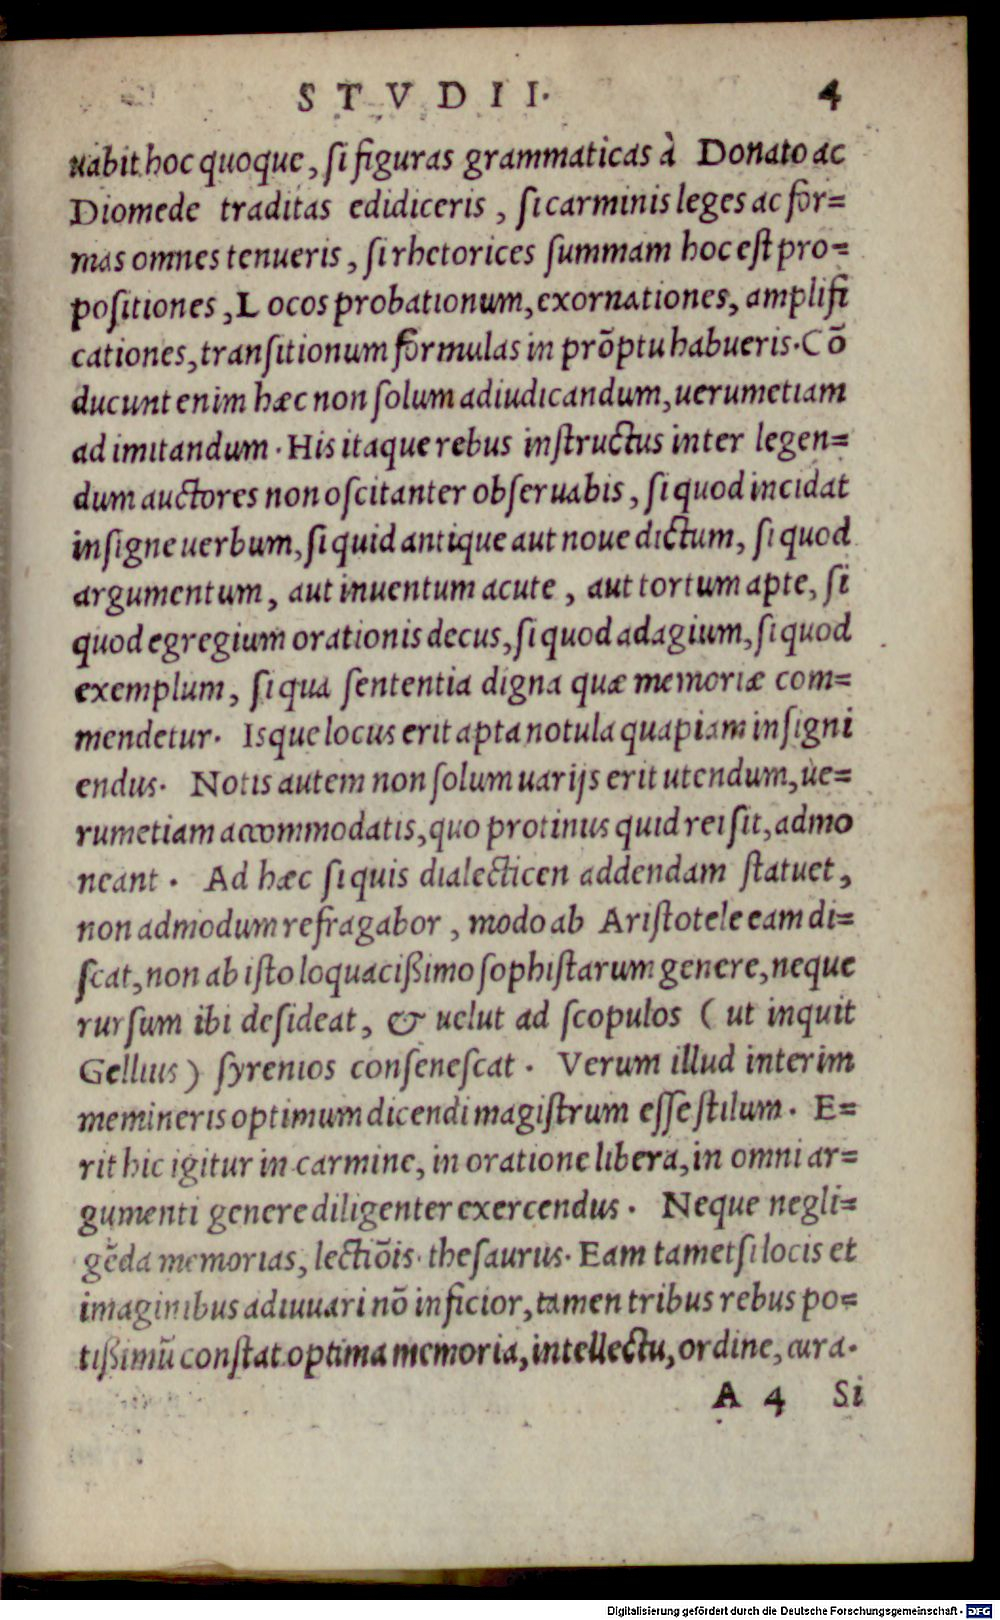 STVDII. 4
uabit hoc quoque, si figuras grammaticas à Donato ac
Diomede traditas edidiceris, si carminis leges ac for=
mas omnes tenueris, si rhetorices summam hoc est pro=
positiones, Locos probationum, exornationes, amplifi
cationes, transitionum formulas in prõptu habueris. Cõ
ducunt enim hæc non solum ad iudicandum, uerumetiam
ad imitandum. His itaque rebus instructus inter legen=
dum auctores non oscitanter obseruabis, si quod incidat
insigne uerbum, si quid antique aut noue dictum, si quod
argumentum, aut inuentum acute, aut tortum apte, si
quod egregium orationis decus, si quod adagium, si quod
exemplum, si qua sententia digna quæ memoriæ com=
mendetur. Isque locus erit apta notula quapiam insigni
endus. Notis autem non solum uarijs erit utendum, ue=
rumetiam accommodatis, quo protinus quid rei sit, admo
neant. Ad hæc si quis dialecticen addendam statuet,
non admodum refragabor, modo ab Aristotele eam di=
scat, non ab isto loquacißimo sophistarum genere, neque
rursum ibi desideat, & uelut ad scopulos (ut inquit
Gellius) syrenios consenescat. Verum illud interim
memineris optimum dicendi magistrum esse stilum. E=
rit hic igitur in carmine, in oratione libera, in omni ar=
gumenti genere diligenter exercendus. Neque negli=
gẽda memorias, lectiõis thesaurus. Eam tametsi locis et
imaginibus adiuuari nõ inficior, tamen tribus rebus po=
tißimũ constat optima memoria, intellectu, ordine, cura.
A 4 Si
Digitalisierung gefördert durch die Deutsche Forschungsgemeinschaft - DFG